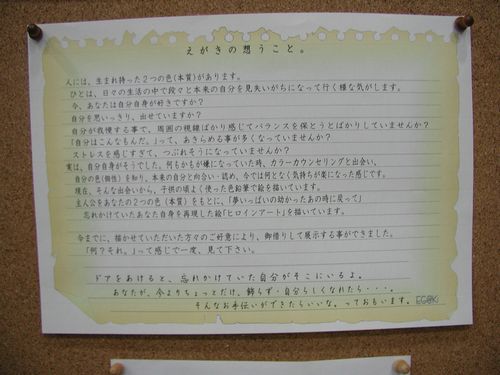 えがきの想うこと。
人には、生まれ持った２つの色(本質)があります。
ひとは、日々の生活の中で段々と本来の自分を見失いがちになって行く様な気がします。
今、あなたは自分自身が好きですか?
自分を思いっきり、出せていますか?
自分が我慢する事で、周囲の視線ばかり感じてバランスを保とうとばかりしていませんか?
「自分はこんなもんだ。」って、あきらめる事が多くなっていませんか?
ストレスを感じすぎて、つぶれそうになっていませんか?
実は、自分自身がそうでした。何もかもが嫌になっていた時、カラーカウンセリングと出会い、
自分の色(個性)を知り、本来の自分と向合い・認め、今では何となく気持ちが楽になった感じです。
現在、そんな出会いから、子供の頃よく使った色鉛筆で絵を描いています。
主人公をあなたの２つの色(本質)をもとに、「夢いっぱいの幼かったあの時に戻って」
忘れかけていたあなた自身を再現した絵「ヒロインアート」を描いています。
今までに、描かせていただいた方々のご好意により、御借りして展示する事ができました。
「何?それ。」って感じで一度、見て下さい。
ドアをあけると、忘れかけていた自分がそこにいるよ。
あなたが、今よりちょっとだけ、飾らず・自分らしくなれたら・・・。
そんなお手伝いができたらいいな。っておもいます。 EGAKI